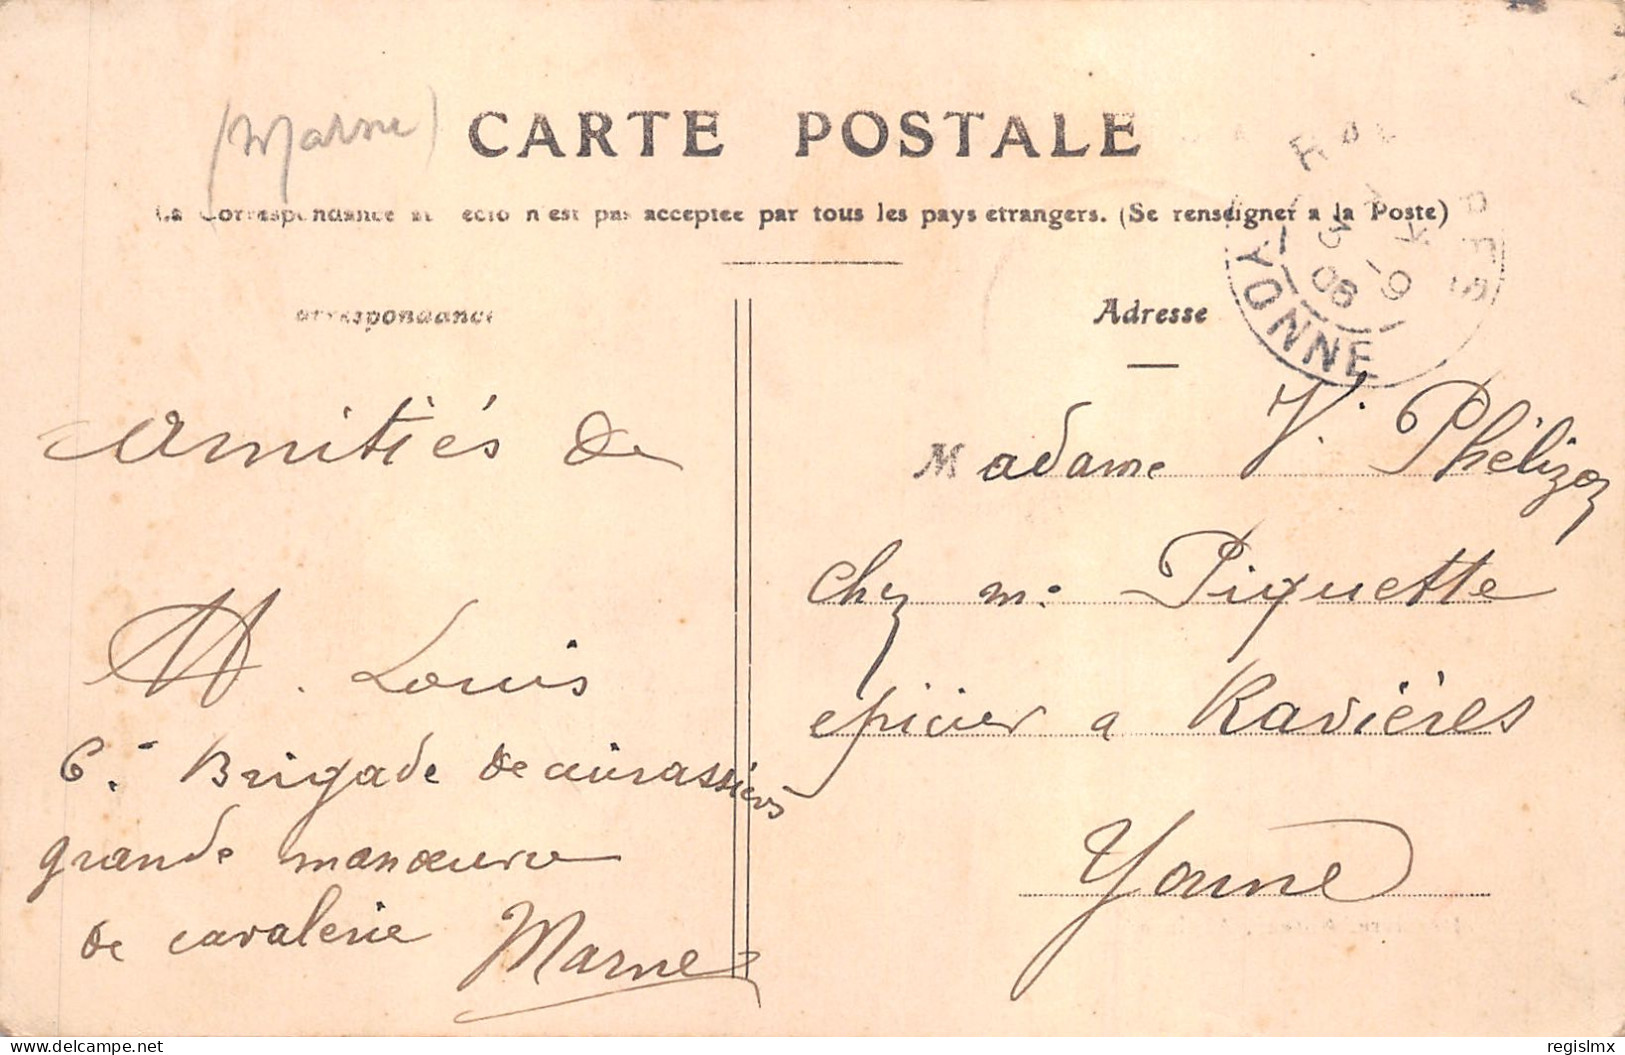 (Marne)
CARTE POSTALE
La Correspondance au recto n'est pas acceptee par tous les pays etrangers. (Se renseigner a la Poste)
Correspondance
Adresse
YONNE
3 -9
06
Amitiés de
Louis
6e Brigade de cuirassiers
grande manœuvre
de cavalerie Marne
Madame V. Phélizon
chez m. Piquette
epicier a Ravières
Yonne
delcampe.net
regislmx